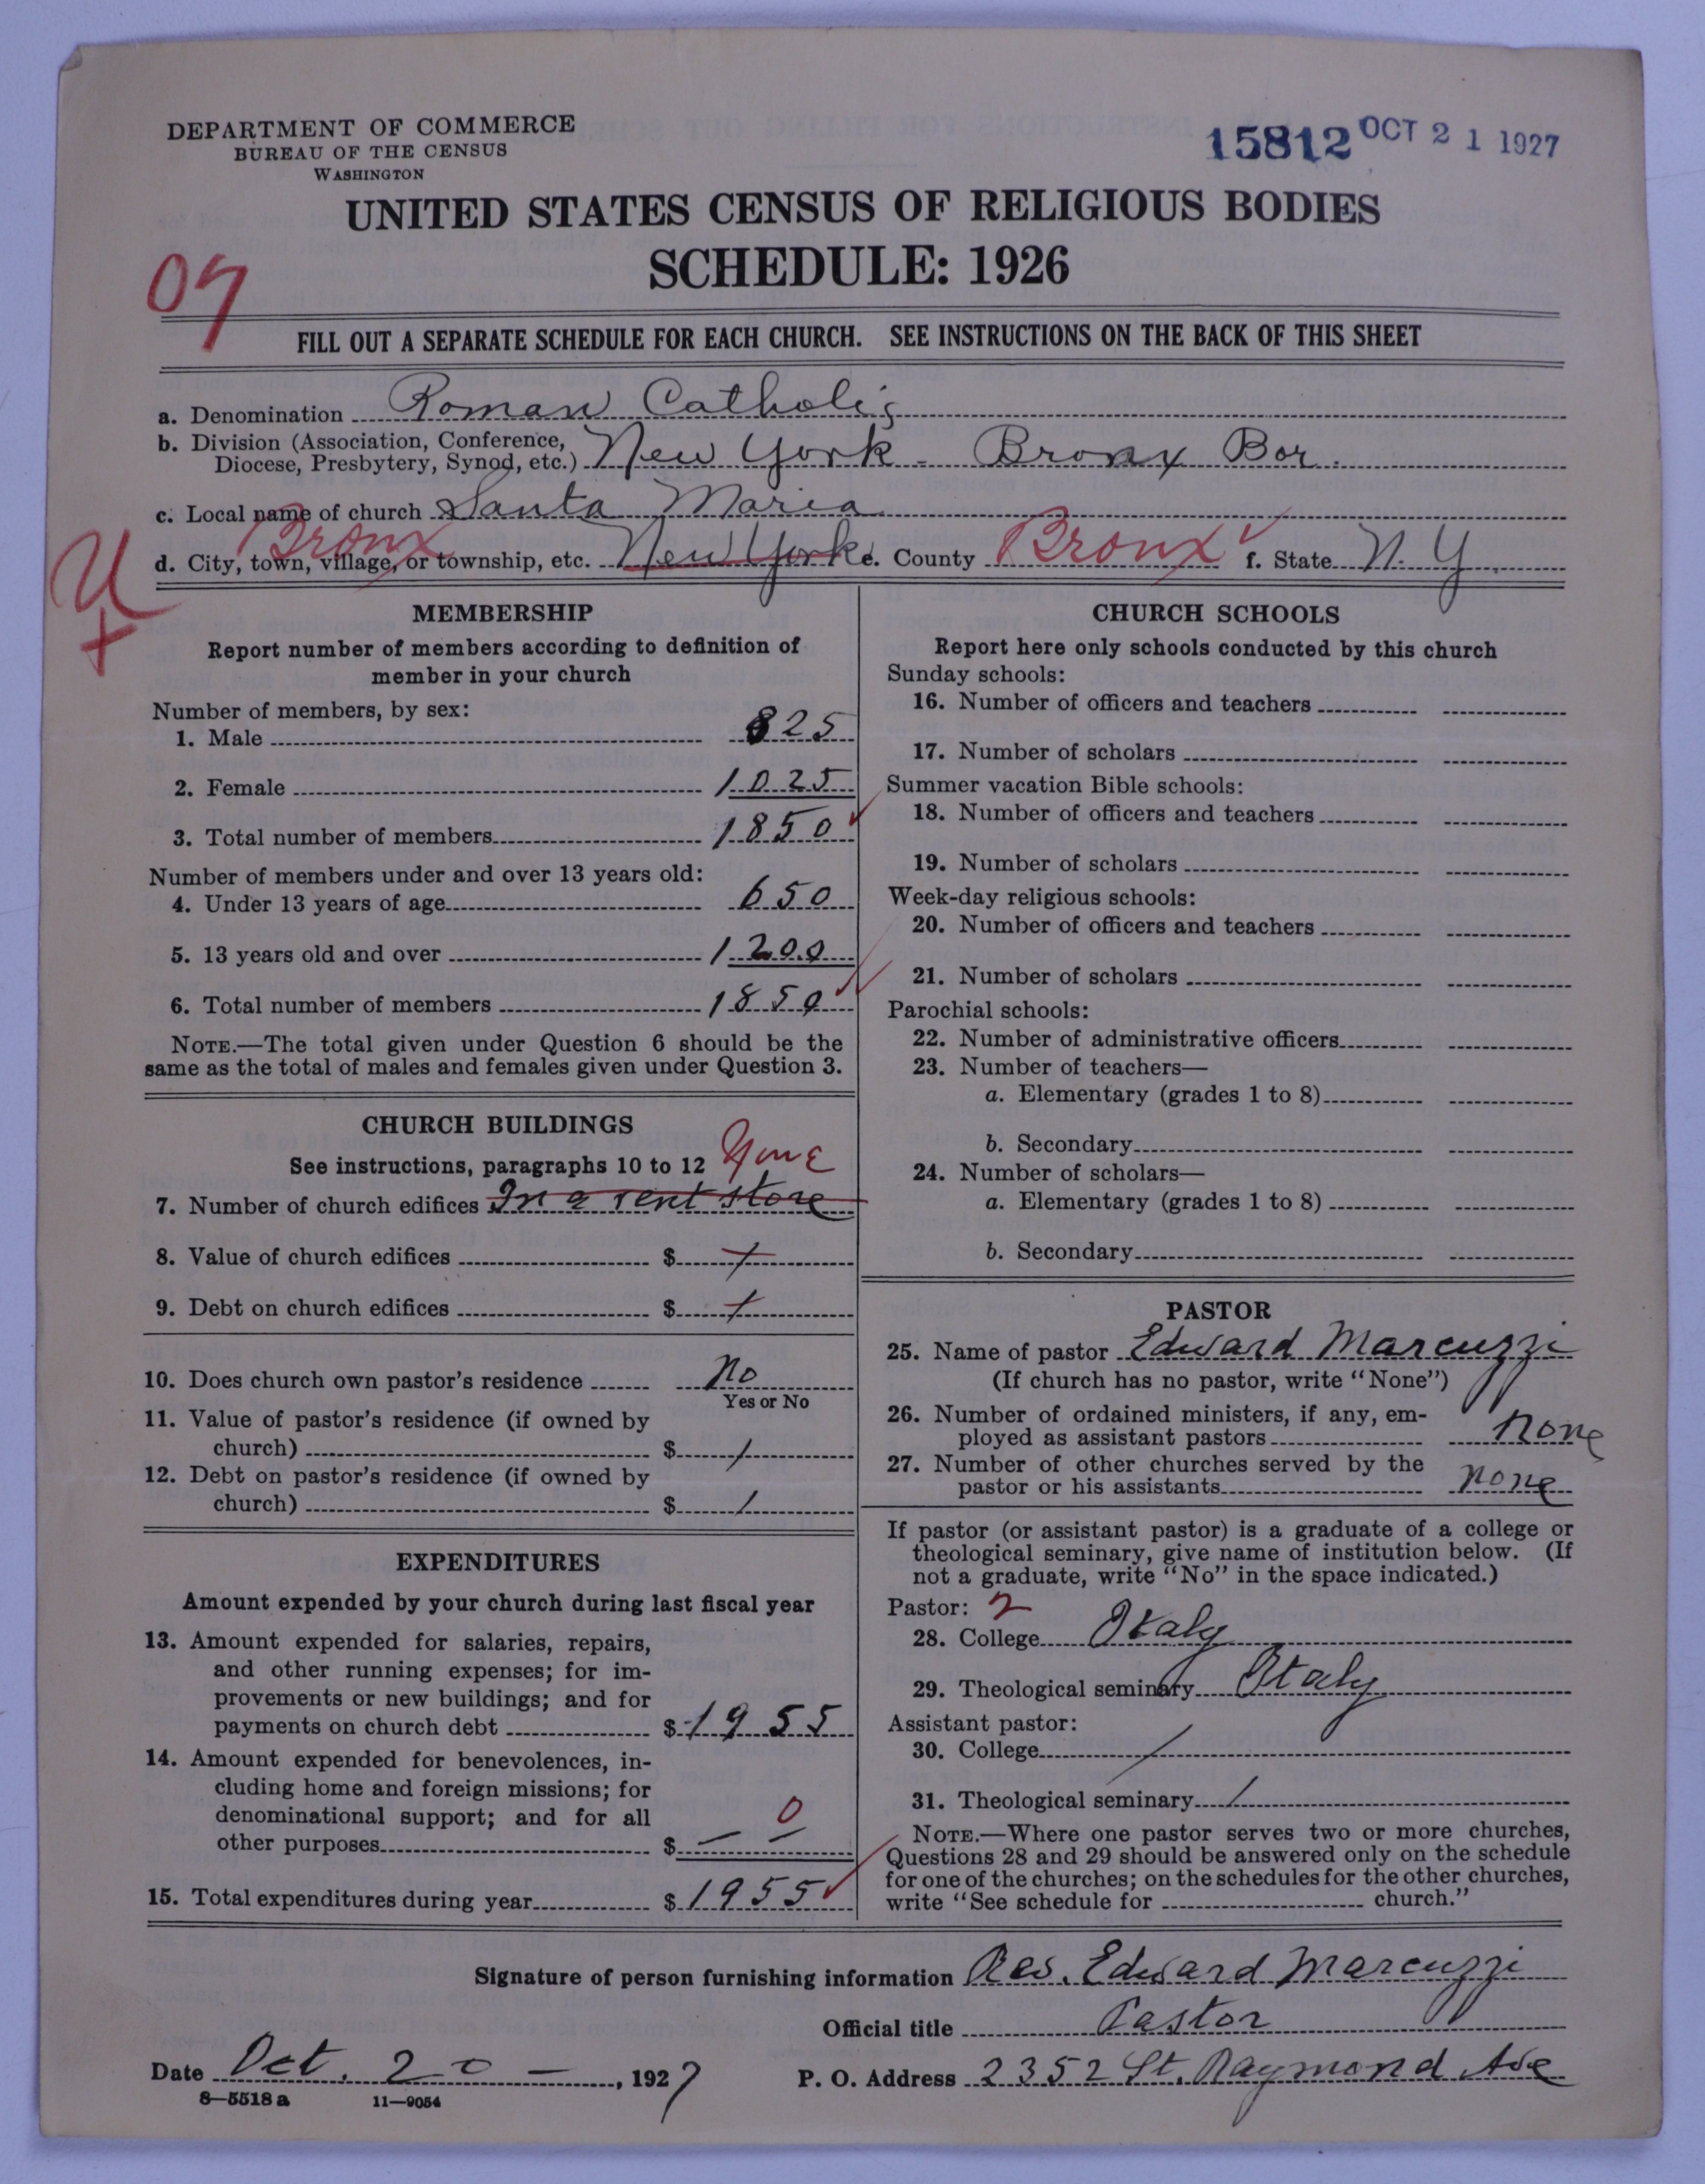 DEPARTMENT OF COMMERCE
BUREAU OF THE CENSUS
WASHINGTON
15812 OCT 21 1927
UNITED STATES CENSUS OF RELIGIOUS BODIES
SCHEDULE: 1926
FILL OUT A SEPARATE SCHEDULE FOR EACH CHURCH. SEE INSTRUCTIONS ON THE BACK OF THIS SHEET
a. Denomination Roman Catholic
b. Division (Association, Conference,
Diocese, Presbytery, Synod, etc.) New York - Bronx Bor.
c. Local name of church Santa Maria
Bronx
d. City, town, village, or township, etc. New York e. County Bronx f. State N.Y.
U
+
MEMBERSHIP
Report number of members according to definition of
member in your church
Number of members, by sex:
1. Male 825
2. Female 1025
3. Total number of members 1850
Number of members under and over 13 years old:
4. Under 13 years of age 650
5. 13 years old and over 1200
6. Total number of members 1850
NOTE.—The total given under Question 6 should be the
same as the total of males and females given under Question 3.
CHURCH BUILDINGS
See instructions, paragraphs 10 to 12 None
7. Number of church edifices In a rent store
8. Value of church edifices $
9. Debt on church edifices $
10. Does church own pastor's residence No
Yes or No
11. Value of pastor's residence (if owned by
church) $ /
12. Debt on pastor's residence (if owned by
church) $ /
EXPENDITURES
Amount expended by your church during last fiscal year
13. Amount expended for salaries, repairs,
and other running expenses; for im-
provements or new buildings; and for
payments on church debt $ 1955
14. Amount expended for benevolences, in-
cluding home and foreign missions; for
denominational support; and for all
other purposes $ — — 0
15. Total expenditures during year $ 1955
CHURCH SCHOOLS
Report here only schools conducted by this church
Sunday schools:
16. Number of officers and teachers
17. Number of scholars
Summer vacation Bible schools:
18. Number of officers and teachers
19. Number of scholars
Week-day religious schools:
20. Number of officers and teachers
21. Number of scholars
Parochial schools:
22. Number of administrative officers
23. Number of teachers—
a. Elementary (grades 1 to 8)
b. Secondary
24. Number of scholars—
a. Elementary (grades 1 to 8)
b. Secondary
PASTOR
25. Name of pastor Edward Marcuzzi
(If church has no pastor, write "None")
26. Number of ordained ministers, if any, em-
ployed as assistant pastors none
27. Number of other churches served by the
pastor or his assistants none
If pastor (or assistant pastor) is a graduate of a college or
theological seminary, give name of institution below. (If
not a graduate, write "No" in the space indicated.)
Pastor: 2
28. College Italy
29. Theological seminary Italy
Assistant pastor:
30. College /
31. Theological seminary /
NOTE.—Where one pastor serves two or more churches,
Questions 28 and 29 should be answered only on the schedule
for one of the churches; on the schedules for the other churches,
write "See schedule for church."
Signature of person furnishing information Rev. Edward Marcuzzi
Official title Pastor
Date Oct. 20 —, 1927 P. O. Address 2352 St. Raymond Ave
8—5518 a 11—9054